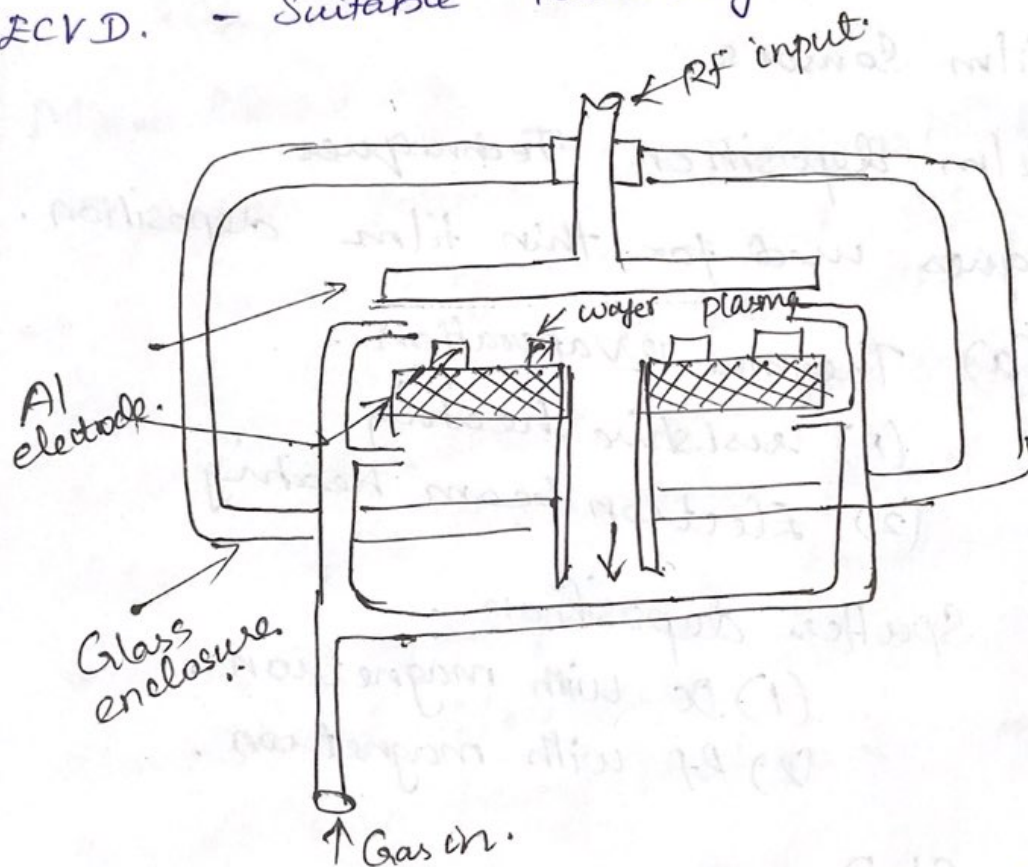 ECVD. - Suitable
RF input.
wafer plasma
Al
electrode.
Glass
enclosure.
Gas in.